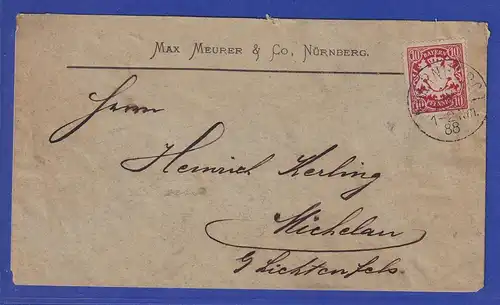 MAX MEURER & CO, NÜRNBERG.
10 BAYERN 10
10 PFENNIG 10
1-2 
88
Herrn
Heinrich Kerling
Michelau
b/Lichtenfels